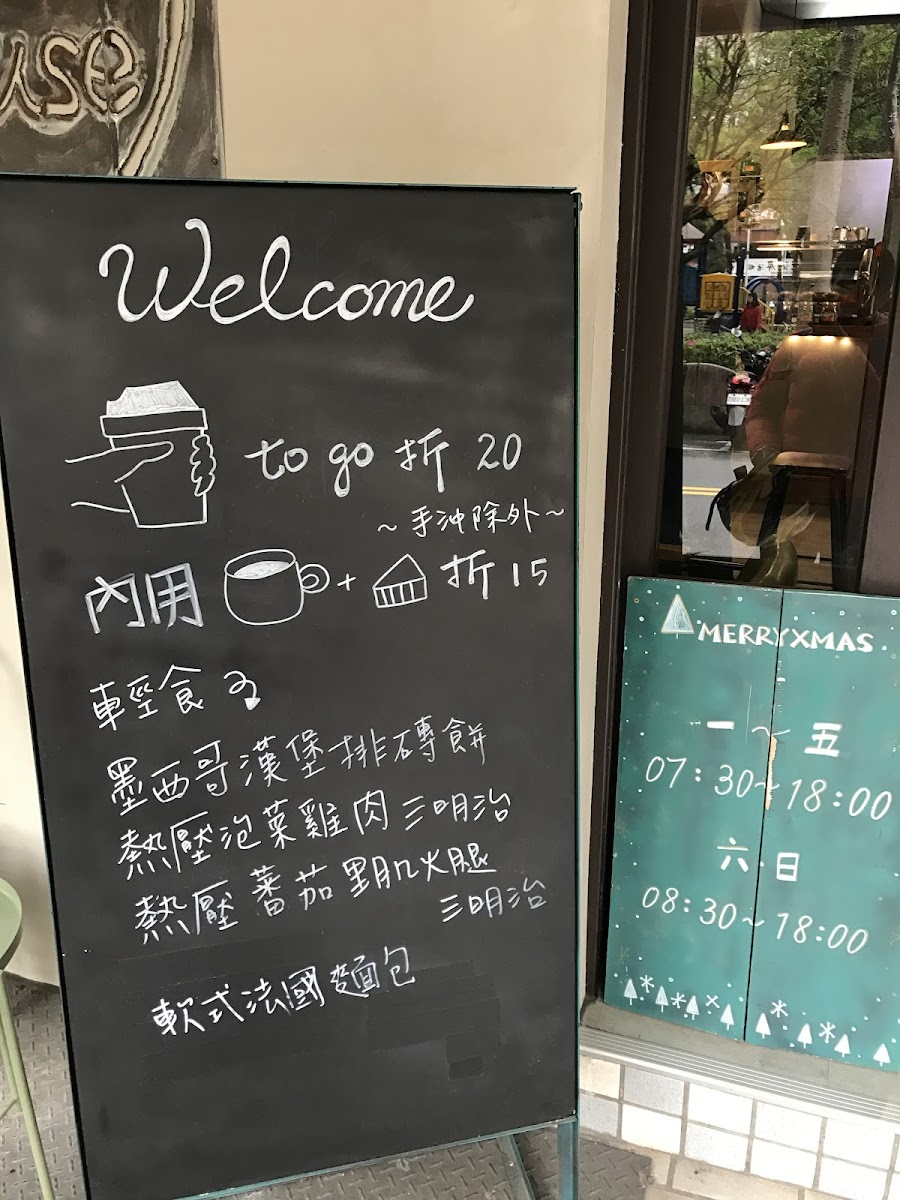 use
Welcome
to go 折 20
~手沖除外~
內用 + 折 15
輕食
墨西哥漢堡排磚餅
熱壓泡菜雞肉三明治
熱壓蕃茄野肌火腿
三明治
軟式法國麵包
MERRY XMAS
一~五
07:30~18:00
六.日
08:30~18:00